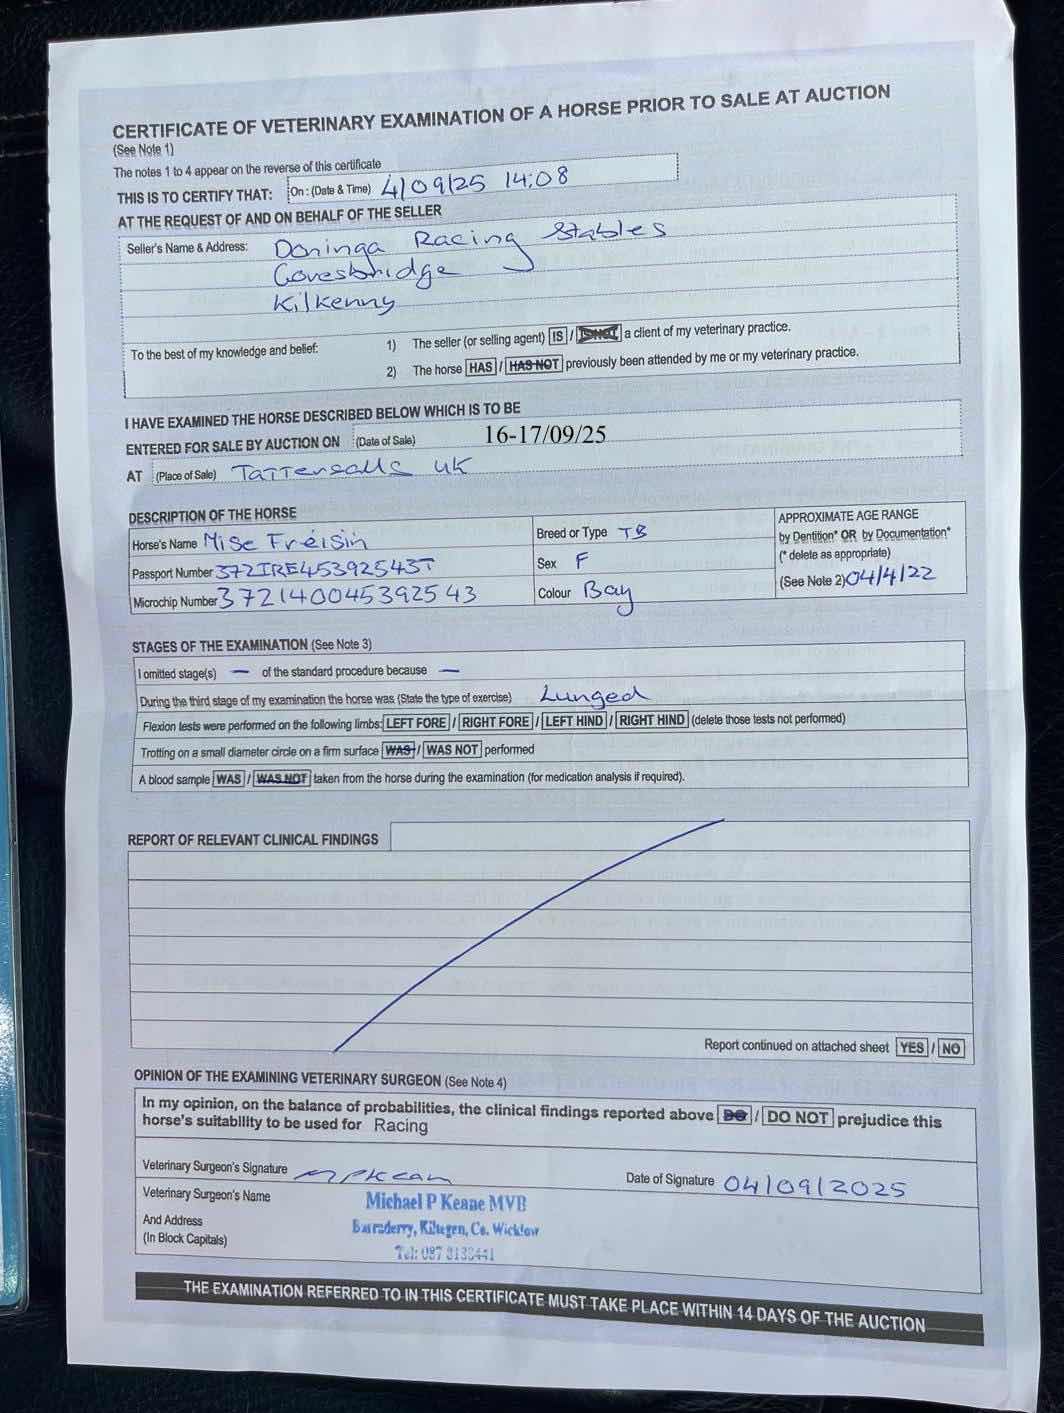 CERTIFICATE OF VETERINARY EXAMINATION OF A HORSE PRIOR TO SALE AT AUCTION
(See Note 1)
The notes 1 to 4 appear on the reverse of this certificate
THIS IS TO CERTIFY THAT: On : (Date & Time) 4/09/25 14:08
AT THE REQUEST OF AND ON BEHALF OF THE SELLER
Seller's Name & Address: Doninga Racing Stables
Goresbridge
Kilkenny
To the best of my knowledge and belief: 1) The seller (or selling agent) IS / IS NOT a client of my veterinary practice.
2) The horse HAS / HAS NOT previously been attended by me or my veterinary practice.
I HAVE EXAMINED THE HORSE DESCRIBED BELOW WHICH IS TO BE
ENTERED FOR SALE BY AUCTION ON (Date of Sale) 16-17/09/25
AT (Place of Sale) Tattersalls UK
DESCRIPTION OF THE HORSE
Horse's Name Mise Fréisin Breed or Type TB
Passport Number 372IRE45392543T Sex F
Microchip Number 372140045392543 Colour Bay
APPROXIMATE AGE RANGE
by Dentition* OR by Documentation*
(* delete as appropriate)
(See Note 2) 04/4/22
STAGES OF THE EXAMINATION (See Note 3)
I omitted stage(s) — of the standard procedure because —
During the third stage of my examination the horse was (State the type of exercise) Lunged
Flexion tests were performed on the following limbs: LEFT FORE / RIGHT FORE / LEFT HIND / RIGHT HIND (delete those tests not performed)
Trotting on a small diameter circle on a firm surface WAS / WAS NOT performed
A blood sample WAS / WAS NOT taken from the horse during the examination (for medication analysis if required).
REPORT OF RELEVANT CLINICAL FINDINGS
Report continued on attached sheet YES / NO
OPINION OF THE EXAMINING VETERINARY SURGEON (See Note 4)
In my opinion, on the balance of probabilities, the clinical findings reported above DO / DO NOT prejudice this
horse's suitability to be used for Racing
Veterinary Surgeon's Signature MPKean Date of Signature 04/09/2025
Veterinary Surgeon's Name Michael P Keane MVB
And Address
(In Block Capitals)
Co. Wicklow
Tel: 087
THE EXAMINATION REFERRED TO IN THIS CERTIFICATE MUST TAKE PLACE WITHIN 14 DAYS OF THE AUCTION